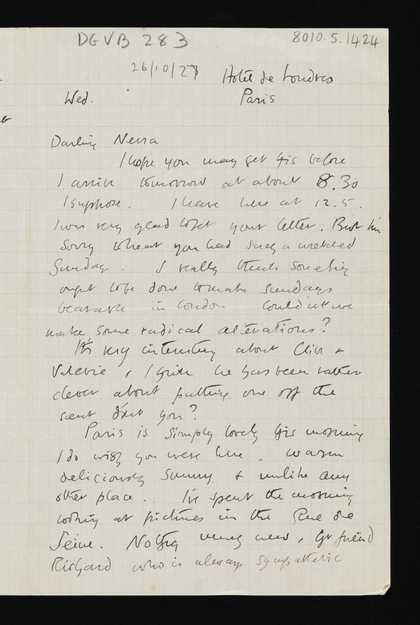 DGVB 283
8010.5.1424
26/10/27
Hotel de Londres
Wed. Paris
Darling Nessa
I hope you may get this before
I arrive tomorrow at about 8.30
I suppose. I leave here at 12.5.
I was very glad to get your letter. But I'm
sorry to hear you had such a wretched
Sunday. I really think something
ought to be done to make Sundays
bearable in London couldn't we
make some radical alterations?
It's very interesting about Clive &
Valerie, & I think he has been rather
clever about putting one off the
scent don't you?
Paris is simply lovely this morning
I do wish you were here, warm
deliciously sunny & unlike any
other place. I've spent the morning
looking at pictures in the Rue de
Seine. Nothing very new, friend
Richard who is always sympathetic